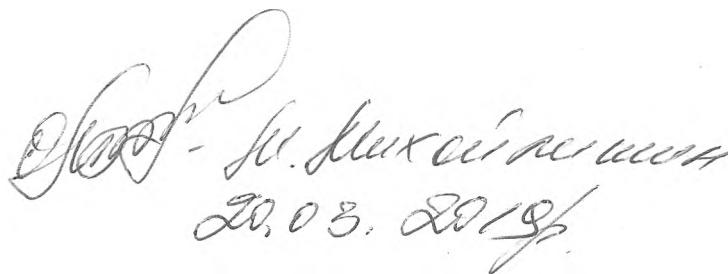 М. Михайлишин
20.03.2019р.